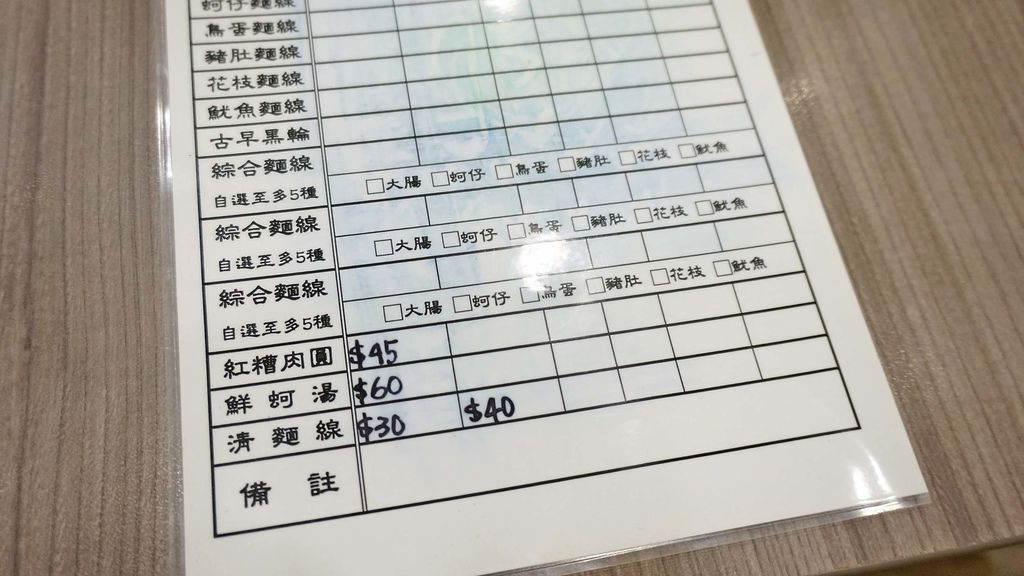 蚵仔麵線
鳥蛋麵線
豬肚麵線
花枝麵線
魷魚麵線
古早黑輪
綜合麵線
自選至多5種 □大腸 □蚵仔 □鳥蛋 □豬肚 □花枝 □魷魚
綜合麵線
自選至多5種 □大腸 □蚵仔 □鳥蛋 □豬肚 □花枝 □魷魚
綜合麵線
自選至多5種 □大腸 □蚵仔 □鳥蛋 □豬肚 □花枝 □魷魚
紅糟肉圓 $45
鮮蚵湯 $60
清麵線 $30 $40
備註